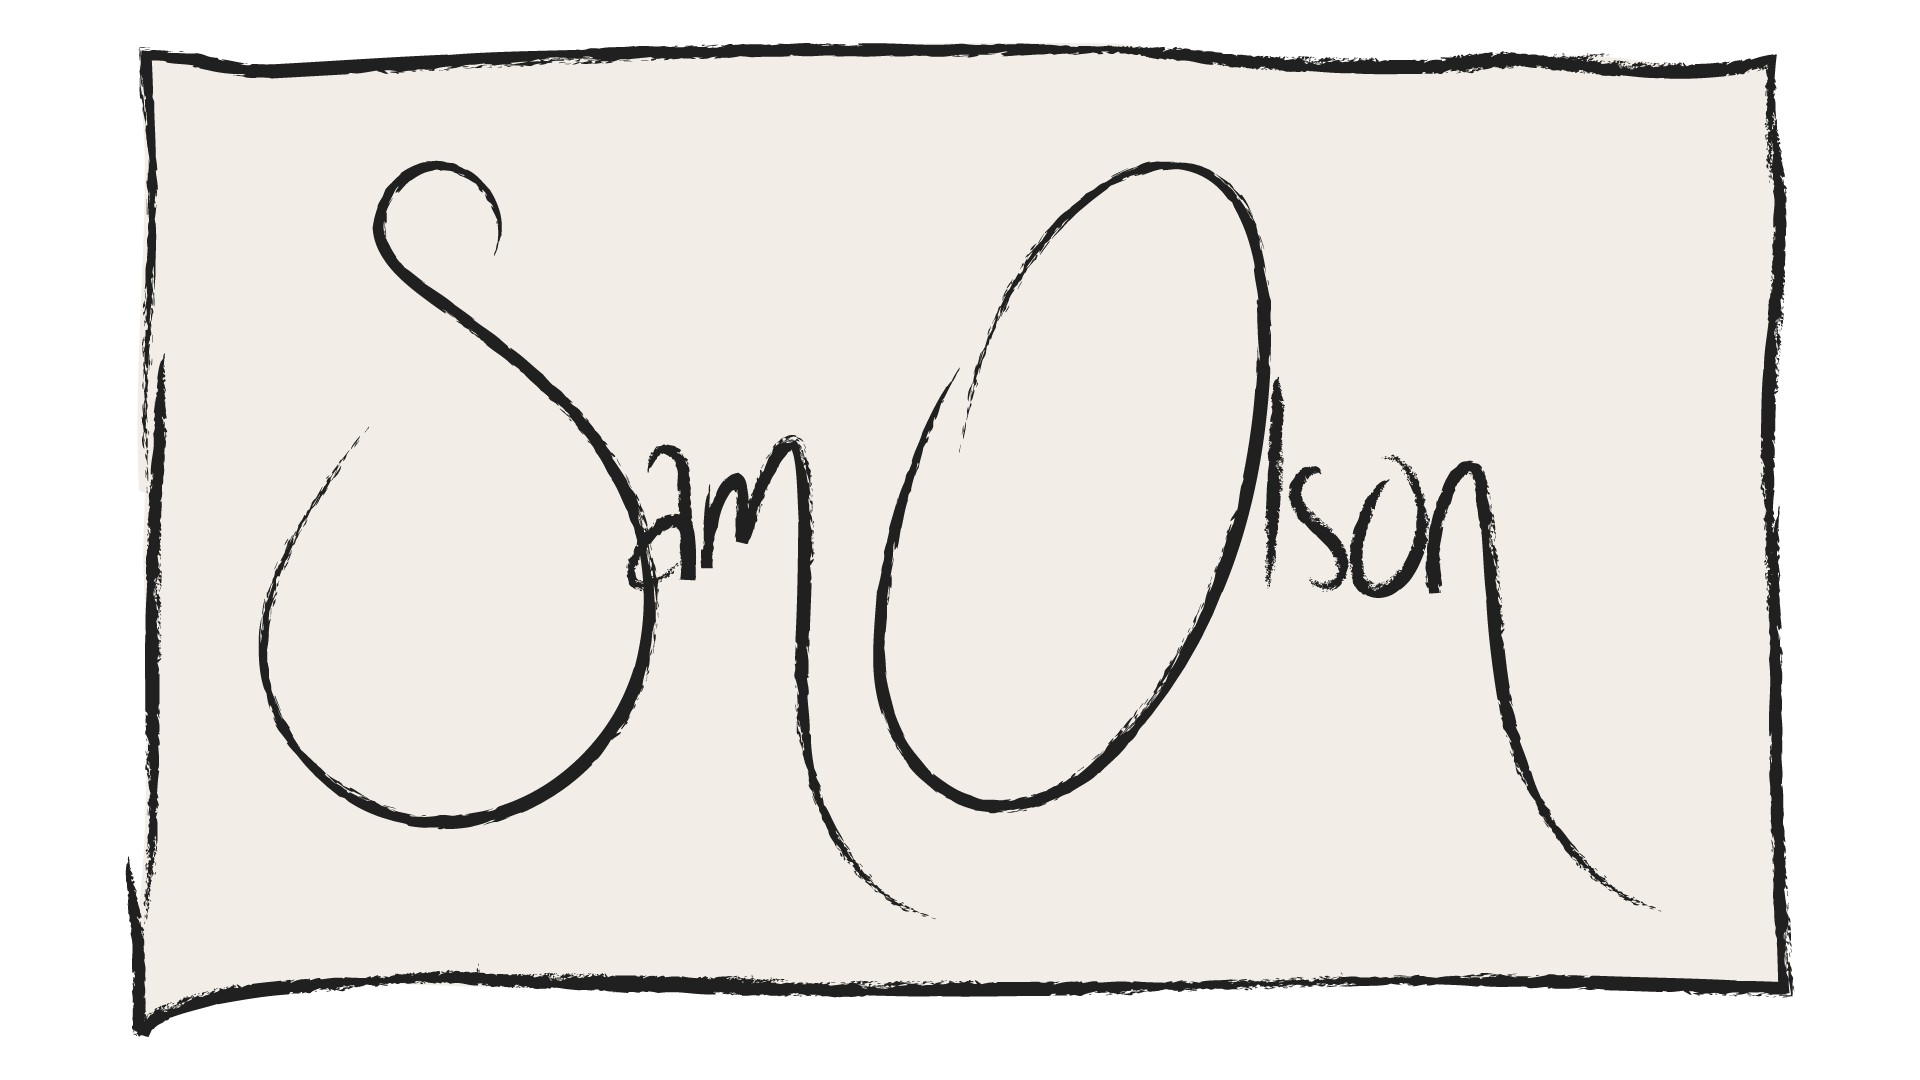 Sam Olson